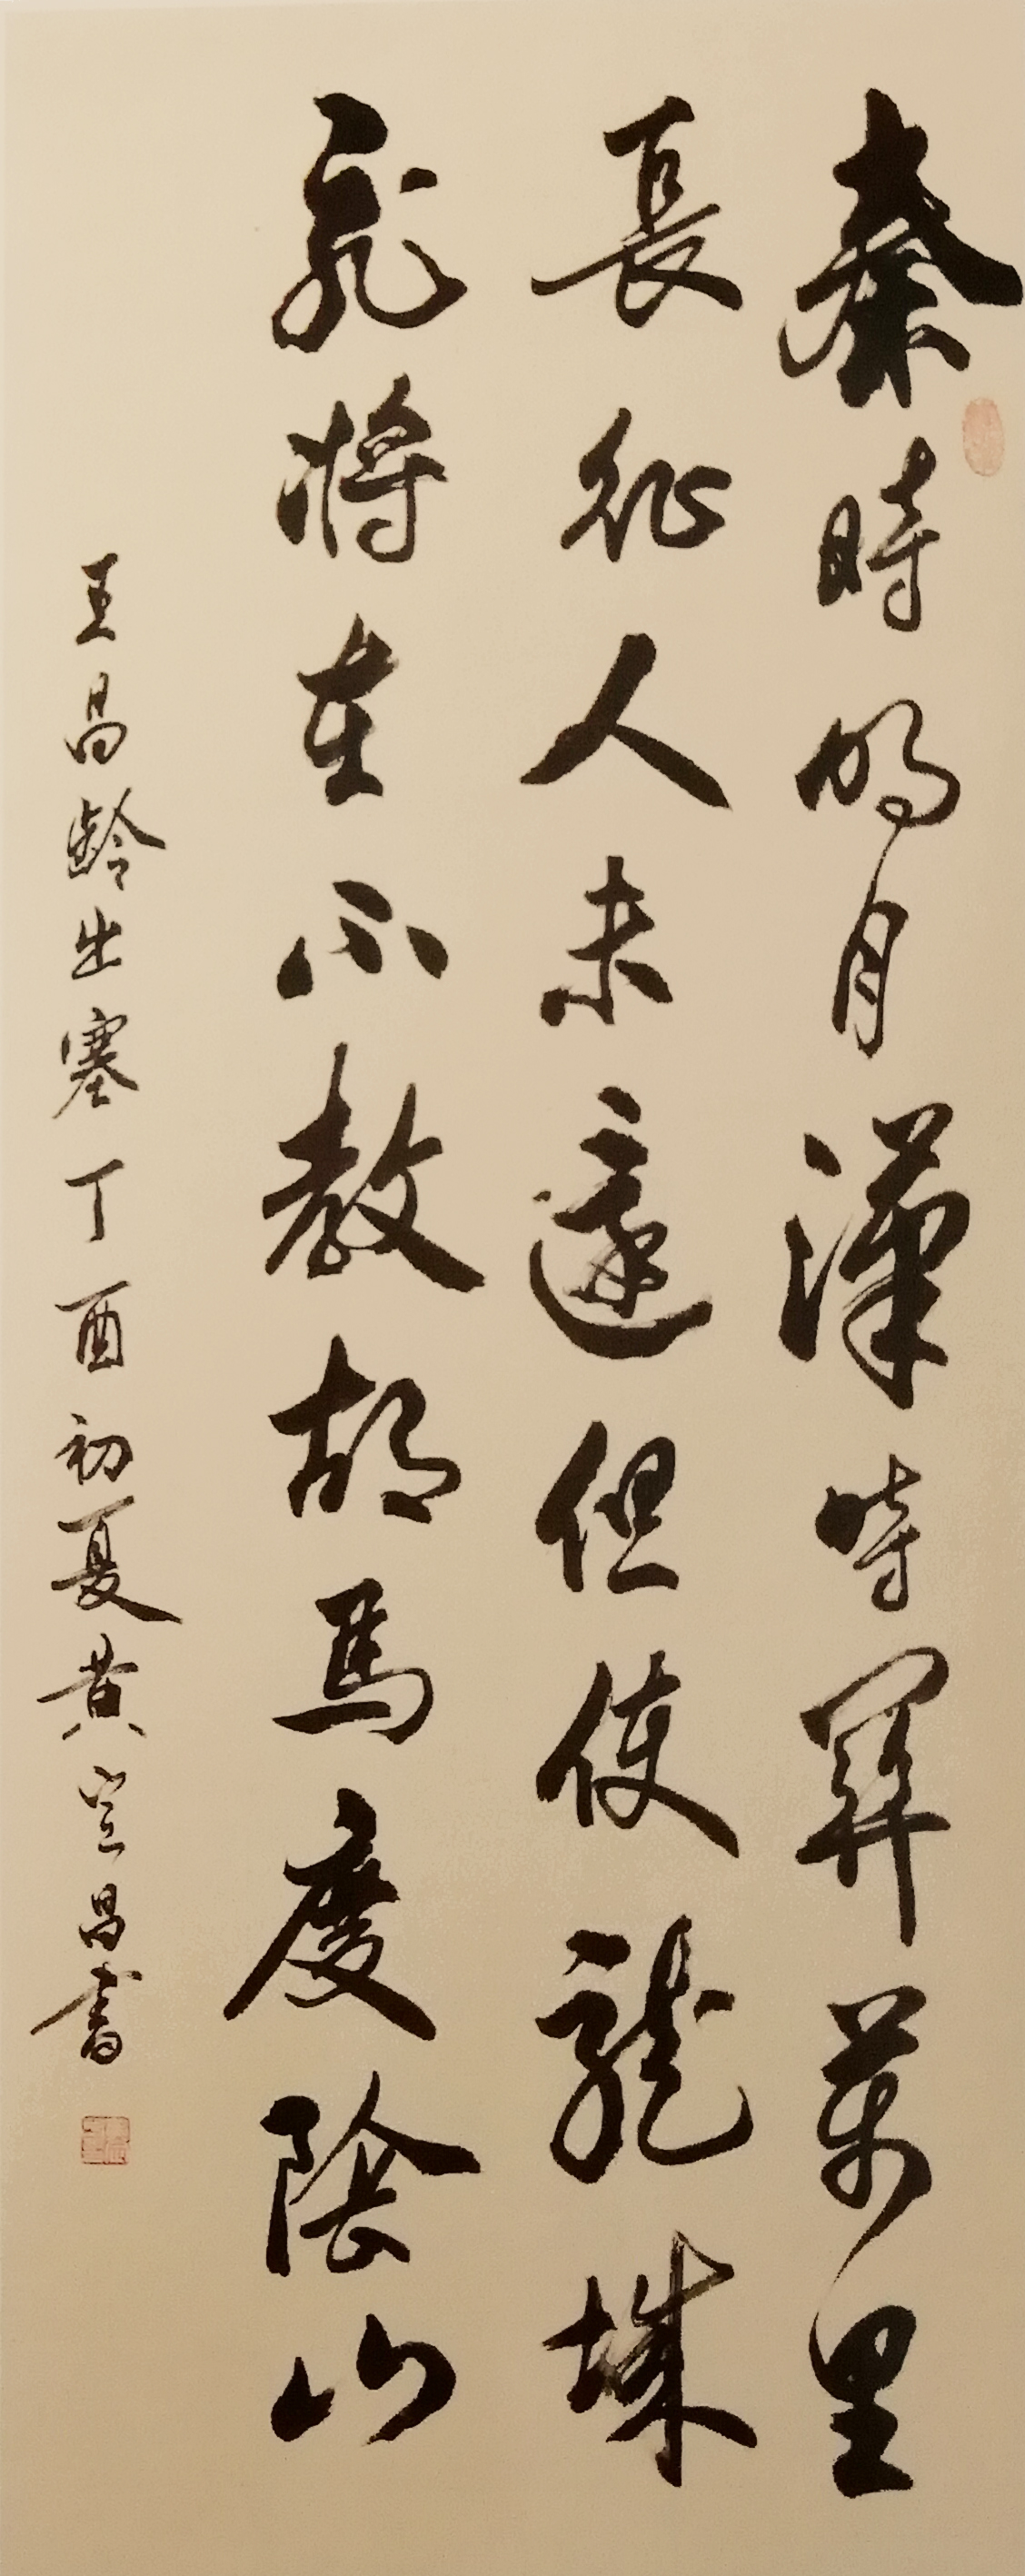 秦時明月漢時關萬里
長征人未還但使龍城
飛將在不教胡馬度陰山
王昌齡出塞丁酉初夏黃宣昌書